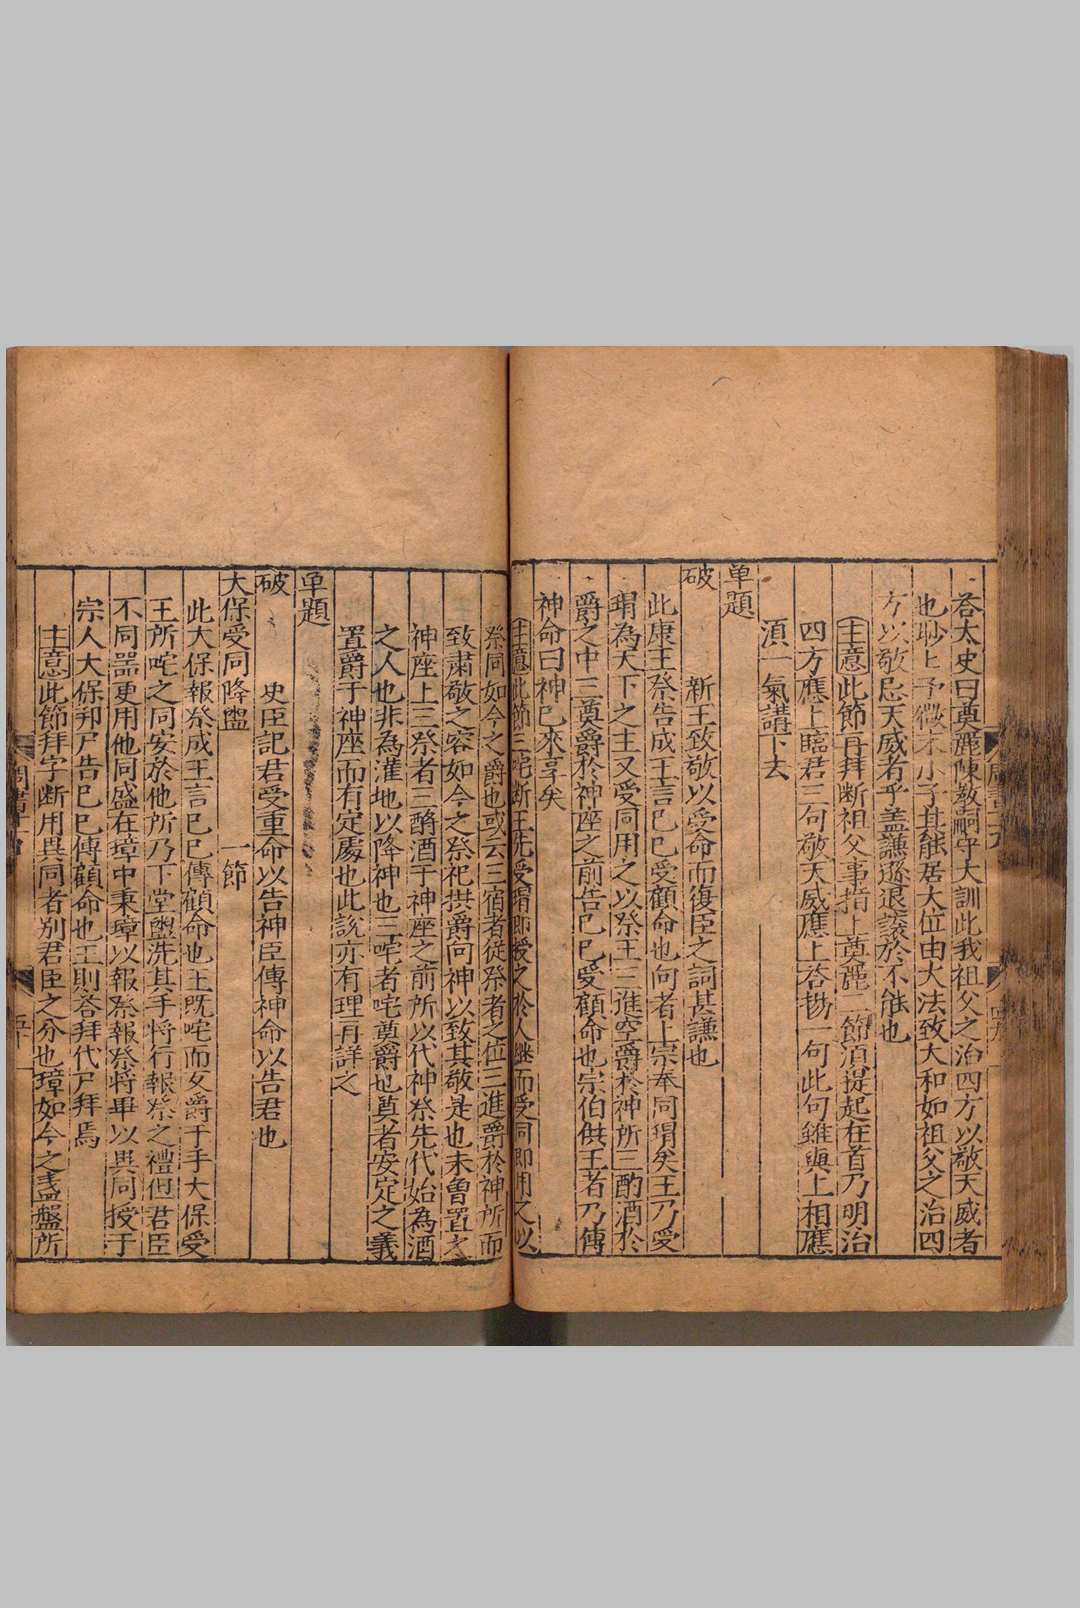 荅太史曰奠麗陳敎嗣守大訓此我祖父之治四方以敬天威者
也眇上予微末小子其能居大位由大法致大和如祖父之治四
方以敬忌天威者乎盖謙遜退諉於不能也
主意此節再拜断祖父事指上奠麗二節湏提起在首乃明治
四方應上臨君三句敬天威應上荅揚一句此句雖與上相應
湏一氣講下去
单題
破 新王致敬以受命而復臣之詞甚謙也
此康王祭告成王言已巳受顧命也向者上宗奉同瑁矣王乃受
瑁為天下之主又受同用之以祭王三進空爵於神所三酌酒於
爵之中三奠爵於神座之前告已巳受顧命也宗伯供王者乃傳
神命曰神已來享矣
主意此節三咤断王先受瑁即授之於人継而受同即用之以
祭同如今之爵也或云三宿者從祭者之位三進爵於神所而
致肅敬之容如今之祭祀拱爵向神以致其敬是也未曽置之
神座上三祭者三酹酒于神座之前所以代神祭先代始為酒
之人也非為灌地以降神也三咤者咤奠爵也奠者安定之義
置爵于神座而有定處也此説亦有理再詳之
单題
破 史臣記君受重命以告神臣傳神命以告君也
大保受同降盥 一節
此大保報祭成王言已巳傳顧命也王既咤而反爵于手大保受
王所咤之同安於他所乃下堂盥洗其手将行報祭之禮但君臣
不同器更用他同盛在璋中秉璋以報祭報祭将畢以異同授于
宗人大保拜尸告已巳傳顧命也王則荅拜代尸拜焉
主意此節拜字断用異同者別君臣之分也璋如今之盞盤所